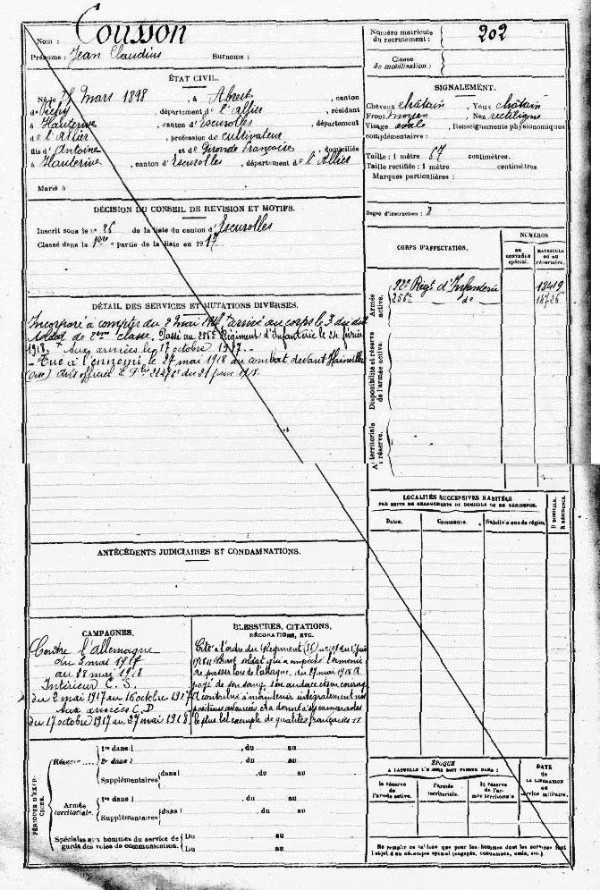 Nom : Cousson
Prénoms : Jean Claudius Surnoms :
Numéro matricule du recrutement : 202
Classe de mobilisation :
ÉTAT CIVIL.
Né le mars 1898, à Abrest, canton
de Vichy, département de l'Allier, résidant
à Hauterive, canton d'Escurolles, département
de l'Allier, profession de cultivateur
fils d'Antoine et de Gironde Françoise domiciliés
à Hauterive, canton d'Escurolles, département de l'Allier
Marié à
SIGNALEMENT.
Cheveux châtain Yeux châtain
Front moyen Nez rectiligne
Visage ovale Renseignements physionomiques
complémentaires :
Taille : 1 mètre 67 centimètres.
Taille rectifiée : 1 mètre centimètres
Marques particulières :
Degré d'instruction : 3
DÉCISION DU CONSEIL DE RÉVISION ET MOTIFS.
Inscrit sous le n° 26 de la liste du canton d'Escurolles
Classé dans la 1ère partie de la liste en 1917
CORPS D'AFFECTATION.
NUMÉROS
AU CONTRÔLE spécial.
MATRICULE OU AU RÉPERTOIRE.
Armée active.
92e Régt d'Infanterie
256e do
Disponibilité et réserve de l'armée active.
Ae territoriale et réserve.
DÉTAIL DES SERVICES ET MUTATIONS DIVERSES.
Incorporé à compter du 2 mai 1917 arrivé au corps le 3 du dit
Soldat de 2ème classe. Passé au 256e Régiment d'Infanterie le 24 février
1918. Aux armées le 17 octobre 1917.
- Tué à l'ennemi le 27 mai 1918 au combat devant
LOCALITÉS SUCCESSIVES HABITÉES
PAR SUITE DE CHANGEMENTS DE DOMICILE OU DE RÉSIDENCE.
Dates. Communes. Subdivisions de région. D DOMICILE. R RÉSIDENCE.
ANTÉCÉDENTS JUDICIAIRES ET CONDAMNATIONS.
CAMPAGNES.
Contre l'allemagne
du 3 mai 1917
au mai 1918
Intérieur C.S.
du 2 mai 1917 au 16 octobre 1917
Aux armées C.D
du 17 octobre 1917 au 27 mai 1918
BLESSURES, CITATIONS,
DÉCORATIONS, ETC.
Cité à l'ordre du Régiment
Brave soldat qui a empêché l'ennemi
de passer lors de l'attaque, du 27 mai 1918 a
payé de son sang son audace et son courage
a contribué à maintenir intégralement nos
positions avancées et a donné à ses camarades
le plus bel exemple de qualités françaises
PÉRIODES D'EXERCICES.
Réserve
1re dans l , du au
2e dans l , du au
Supplémentaires dans l , du au
Armée territoriale.
1re dans l , du au
Supplémentaires dans l , du au
Spéciales aux hommes du service de
gardes des voies de communication.
Du au
Du au
ÉPOQUE
À LAQUELLE L'HOMME DOIT PASSER DANS :
la réserve de l'armée active.
l'armée territoriale.
la réserve de l'armée territoriale
DATE DE LA LIBÉRATION DU service militaire.